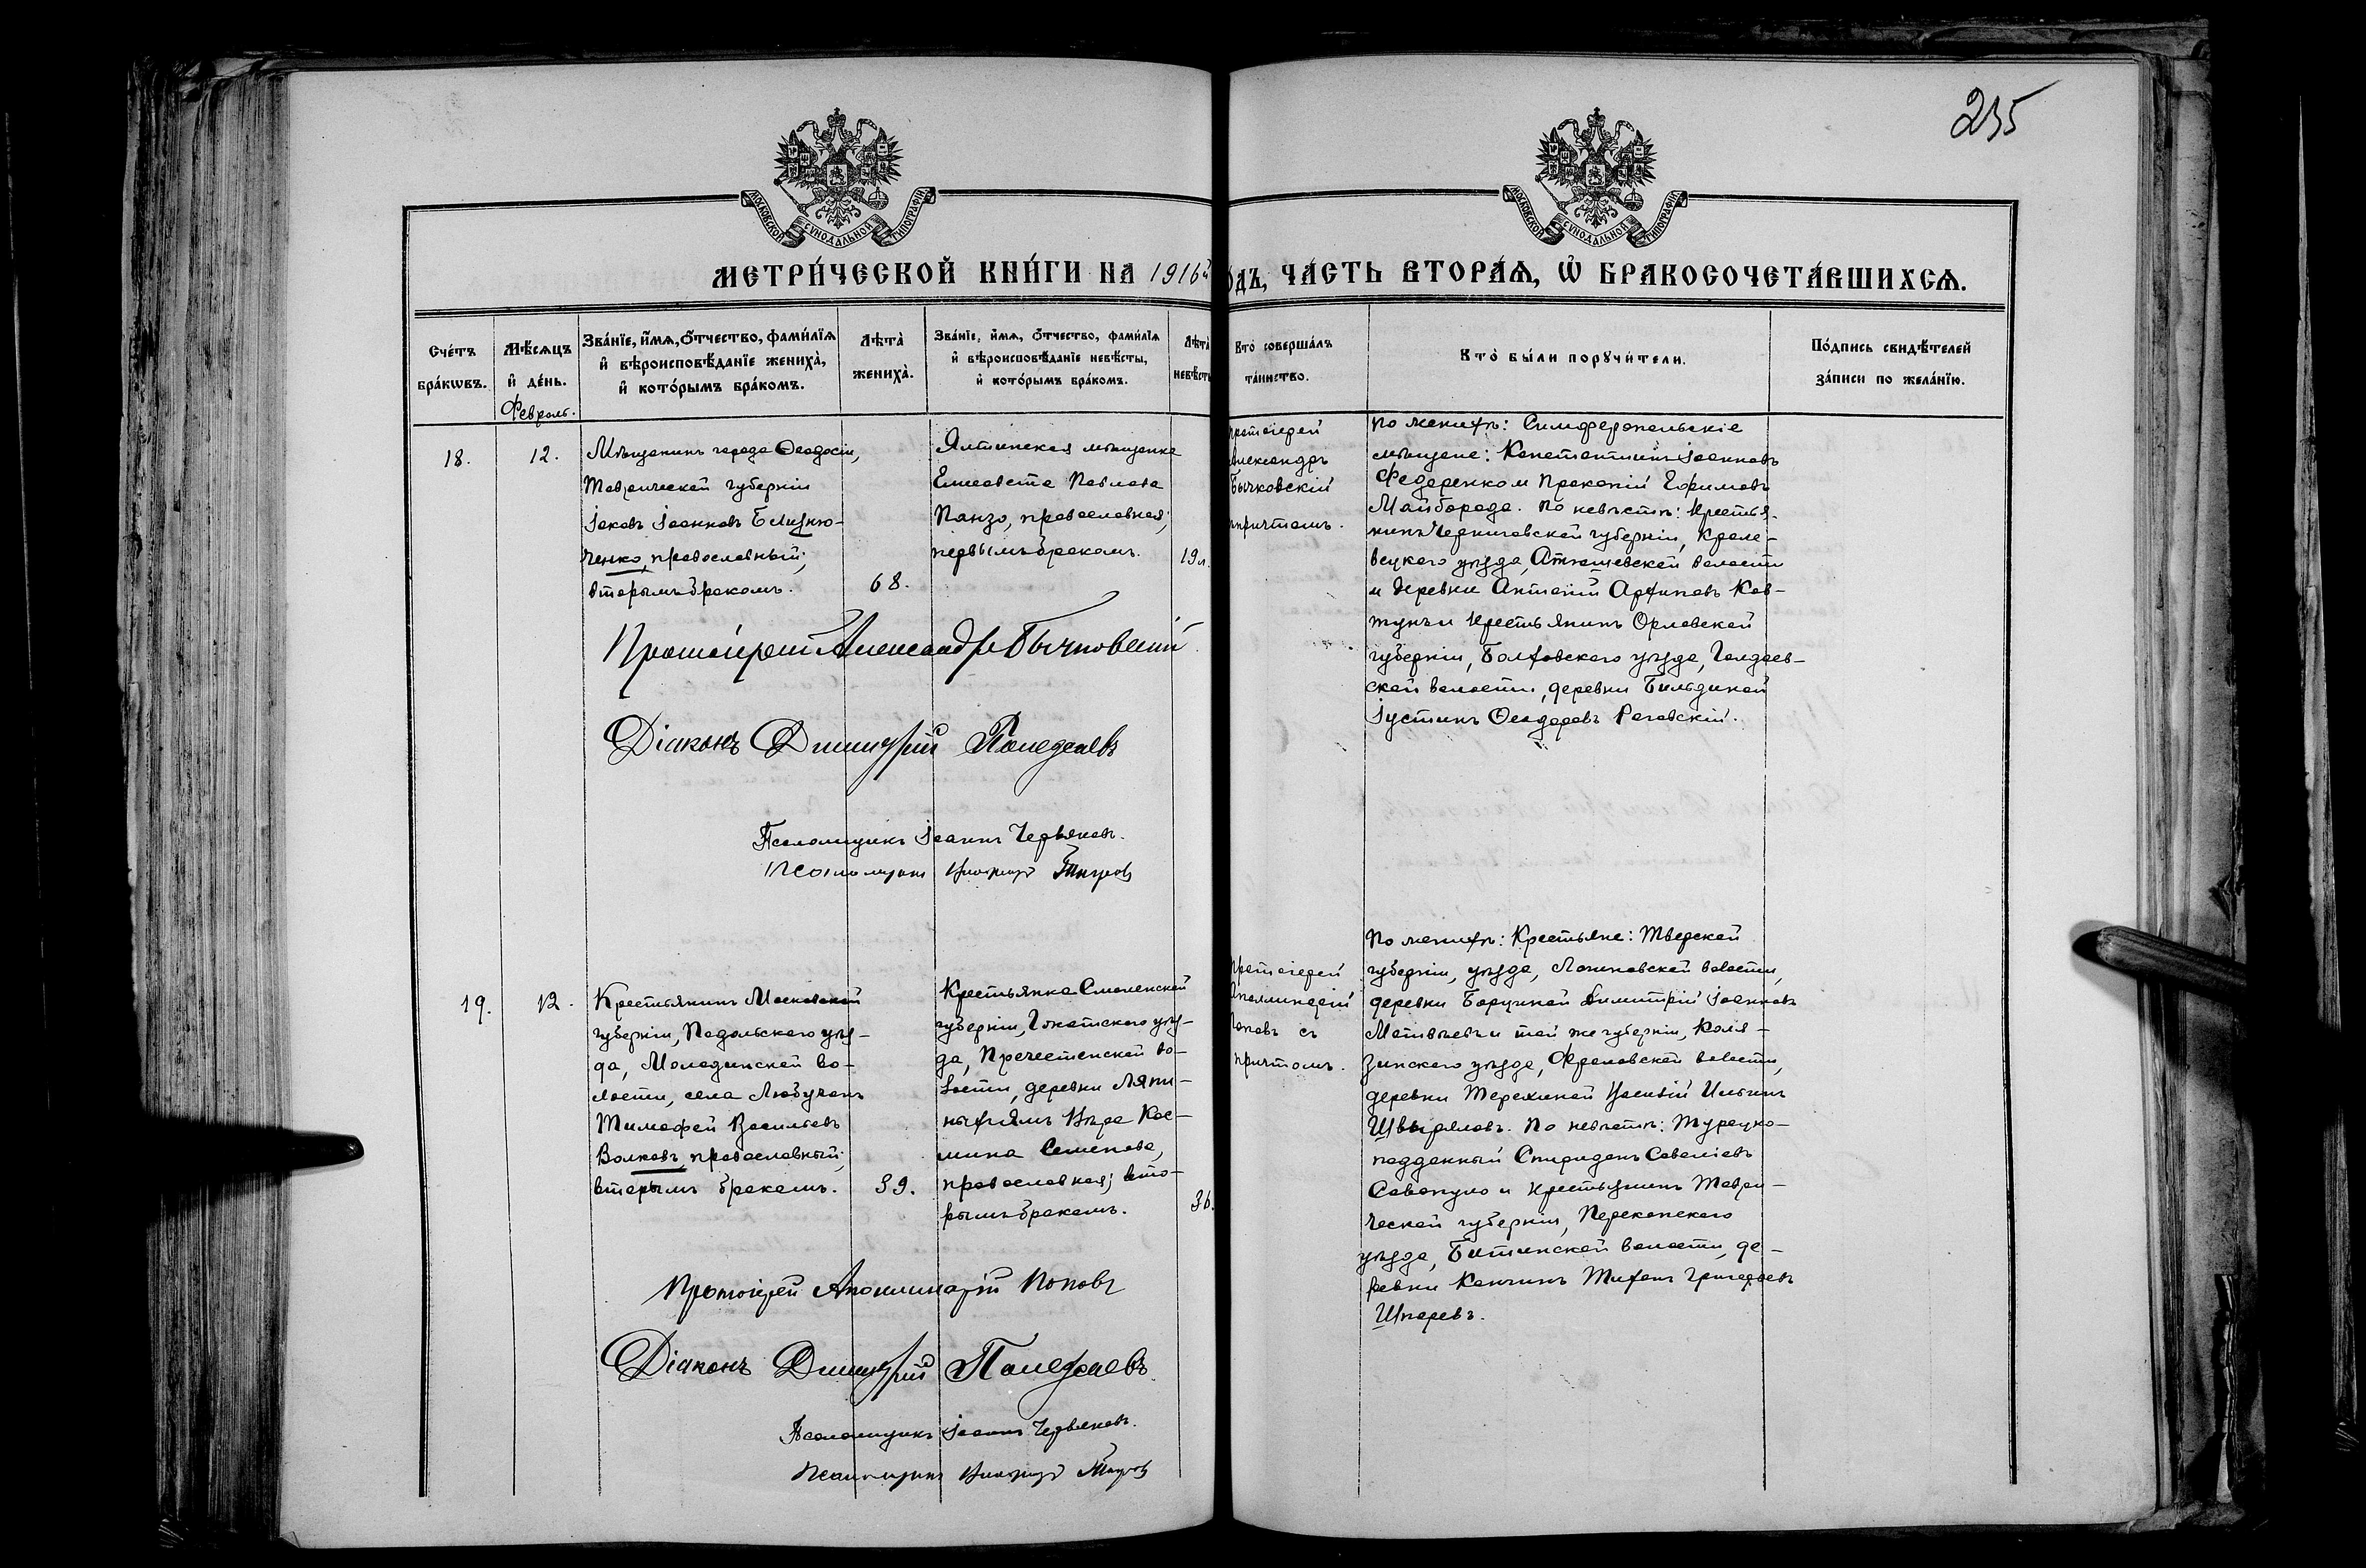 235
МОСКОВСКОЙ СУНОДАЛЬНОЙ ТИПОГРАФІИ.
МОСКОВСКОЙ СУНОДАЛЬНОЙ ТИПОГРАФІИ.
МЕТРИ́ЧЕСКОЙ КНИ́ГИ НА 1916й
ОДЪ, ЧА́СТЬ ВТОРА́Я, Ѡ҆ БРАКОСОЧЕТА́ВШИХСЯ.
Сче́тъ
бра́кѡвъ.
Мѣ́сяцъ
и҆ де́нь.
Февраль.
Зва́нїе, и҆́мя, ѻ҆́тчество, фами́лїя
и҆ вѣроисповѣ́данїе жениха̀,
и҆ кото́рымъ бра́комъ.
Лѣта̀
жениха̀.
Зва́нїе, и҆́мя, ѻ҆́тчество, фами́лїя
и҆ вѣроисповѣ́данїе невѣ́сты,
и҆ кото́рымъ бра́комъ.
Лѣта̀
невѣ́сты
Кто̀ соверша́лъ
та́инство.
Кто̀ бы́ли порꙋчи́тели.
По́дпись свидѣ́телей
за́писи по жела́нїю.
18.
12.
Мѣщанинъ города Ѳеодосіи,
Таврической губерніи
Іаковъ Іоанновъ Близню-
ченко, православный;
вторымъ бракомъ.
68.
Ялтинская мѣщанка
Елисавета Павлова
Панзо, православная;
первымъ бракомъ.
19 л.
ротоіерей
Александръ
Бычковскій
причтомъ.
По женихѣ: Симферопольскіе
мѣщане: Константинъ Іоанновъ
Федоренко и Прокопій Ефимовъ
Майборода. По невѣстѣ: Крестья-
нинъ Черниговской губерніи, Кроле-
вецкаго уѣзда, Атюшевской волости
и деревни Антоній Архиповъ Ков-
тунъ и Крестьянинъ Орловской
губерніи, Болховскаго уѣзда, Голдаев-
ской волости, деревни Бильдиной
Іустинъ Ѳеодоровъ Роговскій.
Протоіерей Александръ Бычковскій
Діаконъ Димитрій Полежаевъ
Псаломщикъ Іоаннъ Червяковъ.
Псаломщикъ
19.
12.
Крестьянинъ Московской
губерніи, Подольскаго уѣз-
да, Молодинской во-
лости, села Любучанъ
Тимофей Васильевъ
Волковъ, православный;
вторымъ бракомъ.
39.
Крестьянка Смоленской
губерніи, Гжатскаго уѣз-
да, Пречистенской во-
лости, деревни Ляпи-
ныхъ Ямъ Вѣра Кос-
мина Семенова,
православная; вто-
рымъ бракомъ.
36.
Протоіерей
Аполлинарій
Поповъ съ
причтомъ.
По женихѣ: Крестьяне: Тверской
губерніи, уѣзда, волости,
деревни Димитрій Іоанновъ
Матвѣевъ и той же губерніи, Коля-
зинскаго уѣзда, Фроловской волости,
деревни Терехиной Василій Ильинъ
Швыряловъ. По невѣстѣ: Турецко-
подданный Спиридонъ Савеліевъ
Савопуло и Крестьянинъ Таври-
ческой губерніи, Перекопскаго
уѣзда, Битинской волости, де-
ревни Тихонъ Григорьевъ
Шпаревъ.
Протоіерей Аполлинарій Поповъ
Діаконъ Димитрій Полежаевъ
Псаломщикъ Іоаннъ Червяковъ.
Псаломщикъ